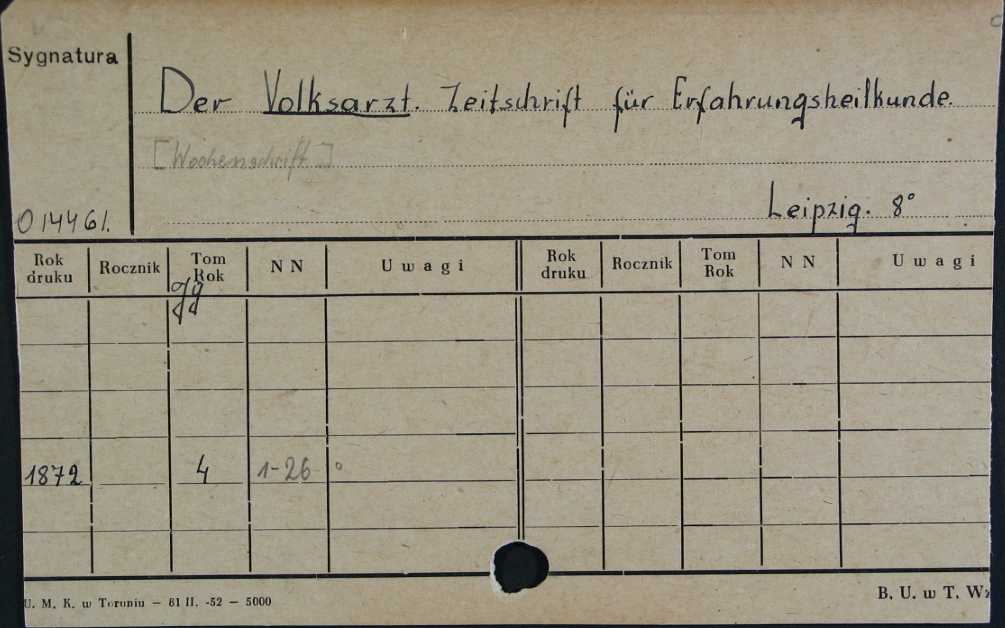 Sygnatura
Der Volksarzt. Zeitschrift für Erfahrungsheilkunde.
[Wochenschrift]
Leipzig. 8°
014461.
Rok druku Rocznik Tom Rok N N Uwagi Rok druku Rocznik Tom Rok N N Uwagi
Jg
1872 4 1-26
U. M. K. w Toruniu — 81 II. -52 — 5000
B. U. w T. W